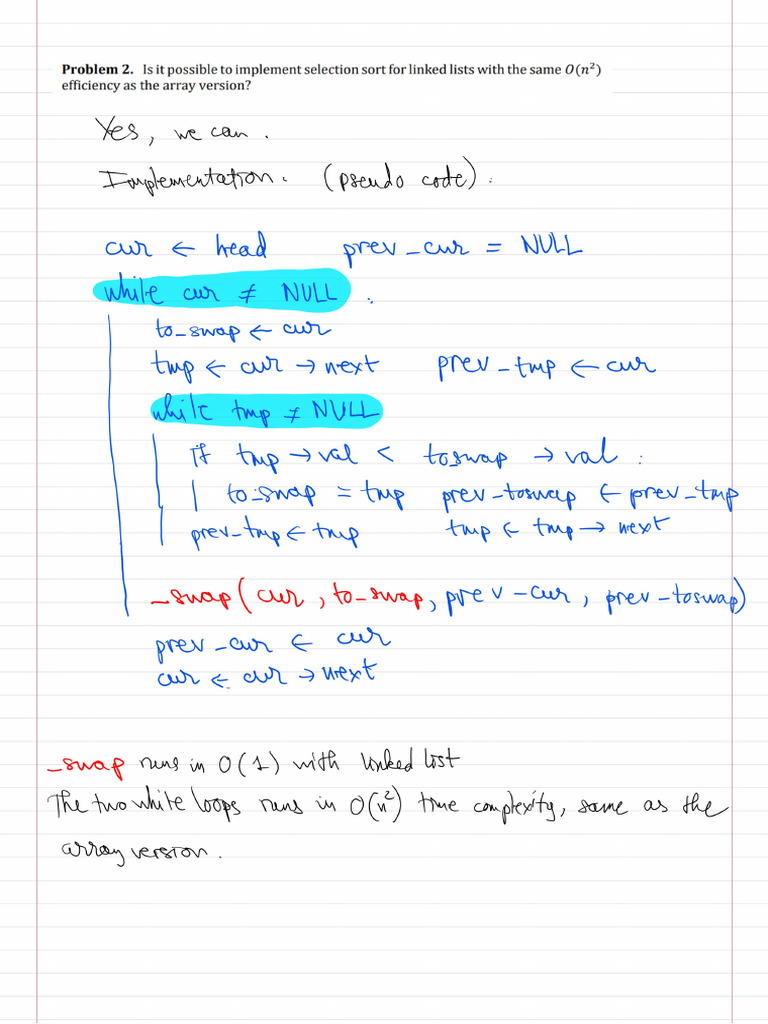 Problem 2. Is it possible to implement selection sort for linked lists with the same O(n²)
efficiency as the array version?
Yes, we can.
Implementation. (pseudo code).
cur ← head prev_cur = NULL
while cur ≠ NULL :
to_swap ← cur
tmp ← cur → next prev_tmp ← cur
while tmp ≠ NULL
if tmp → val < toswap → val :
to_swap = tmp prev_toswap ← prev_tmp
prev_tmp ← tmp tmp ← tmp → next
_swap(cur, to_swap, prev_cur, prev_toswap)
prev_cur ← cur
cur ← cur → next
_swap runs in O(1) with linked list
The two while loops runs in O(n²) time complexity, same as the
array version.